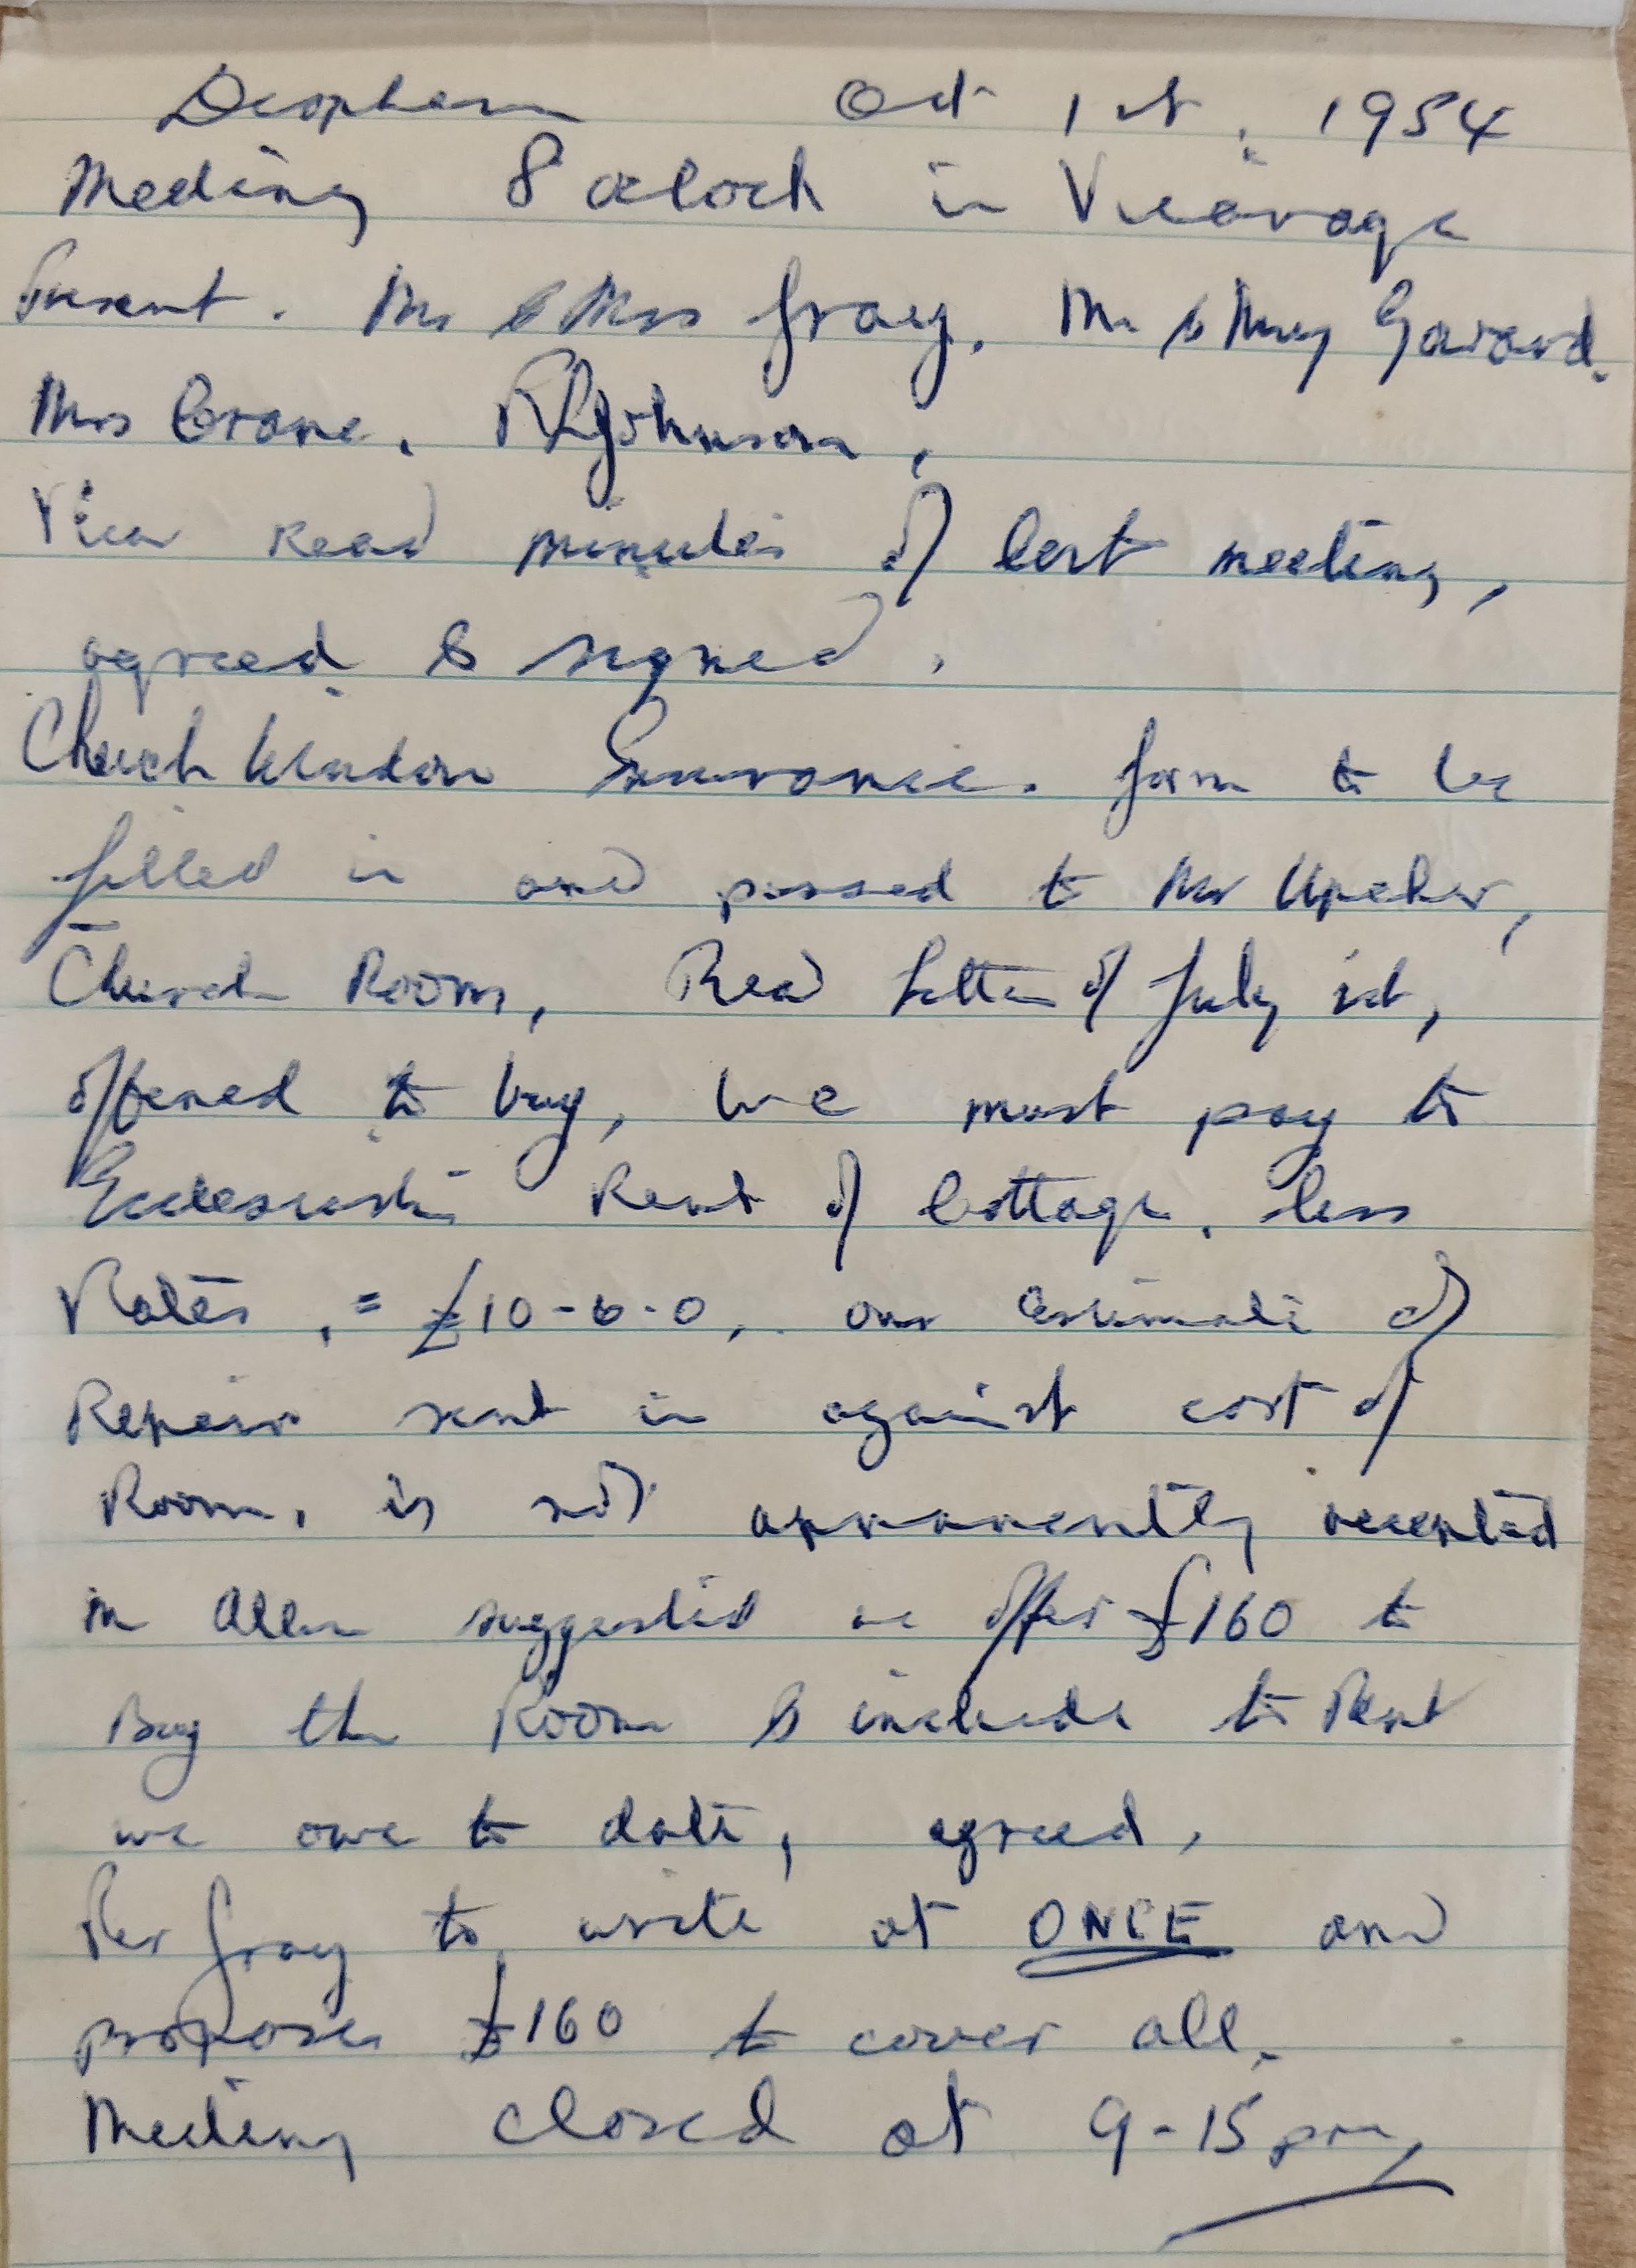 Deopham Oct 1st. 1954
Meeting 8 oclock in Vicarage
Present. Mr & Mrs Gray, Mr & Mrs Garard.
Mrs Crane, R Johnson,
Vicar Read minutes of last meeting,
agreed & signed.
Church Window Insurance. form to be
filled in and passed to Mr Upcher,
Church Room, Read Letter of July 1st,
offered to buy, We must pay to
Rent of Cottage, less
Rates, = £10-6-0, our estimate of
Repairs sent in against cost of
Room, is not apparently accepted
Mr Allen suggested we offer £160 to
Buy the Room & include to Rent
we owe to date, agreed,
Rev Gray to write at ONCE and
propose £160 to cover all.
Meeting closed at 9-15 pm,